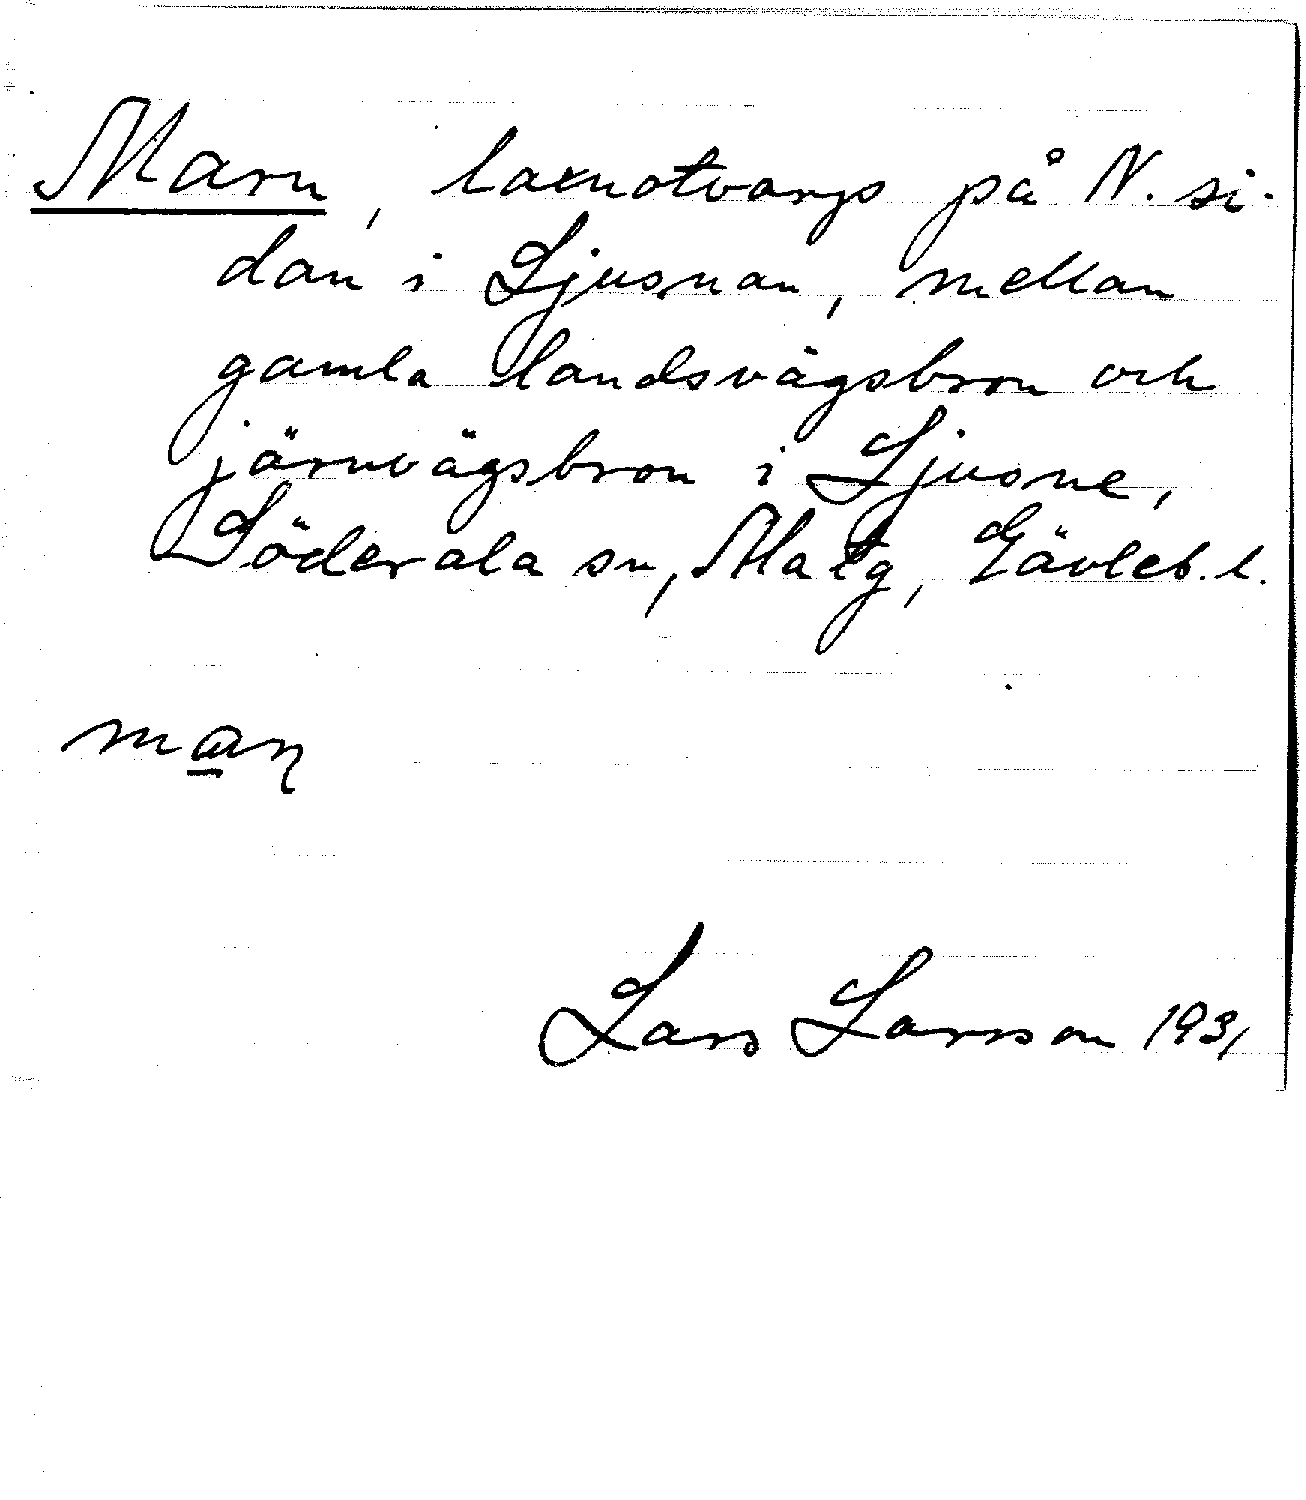 Marn, laxnotvarp på N. si-
dan i Ljusnan, mellan
gamla landsvägsbron och
järnvägsbron i Ljusne,
Söderala sn, Ala tg, Gävleb. l.
man
Lars Larsson 1931